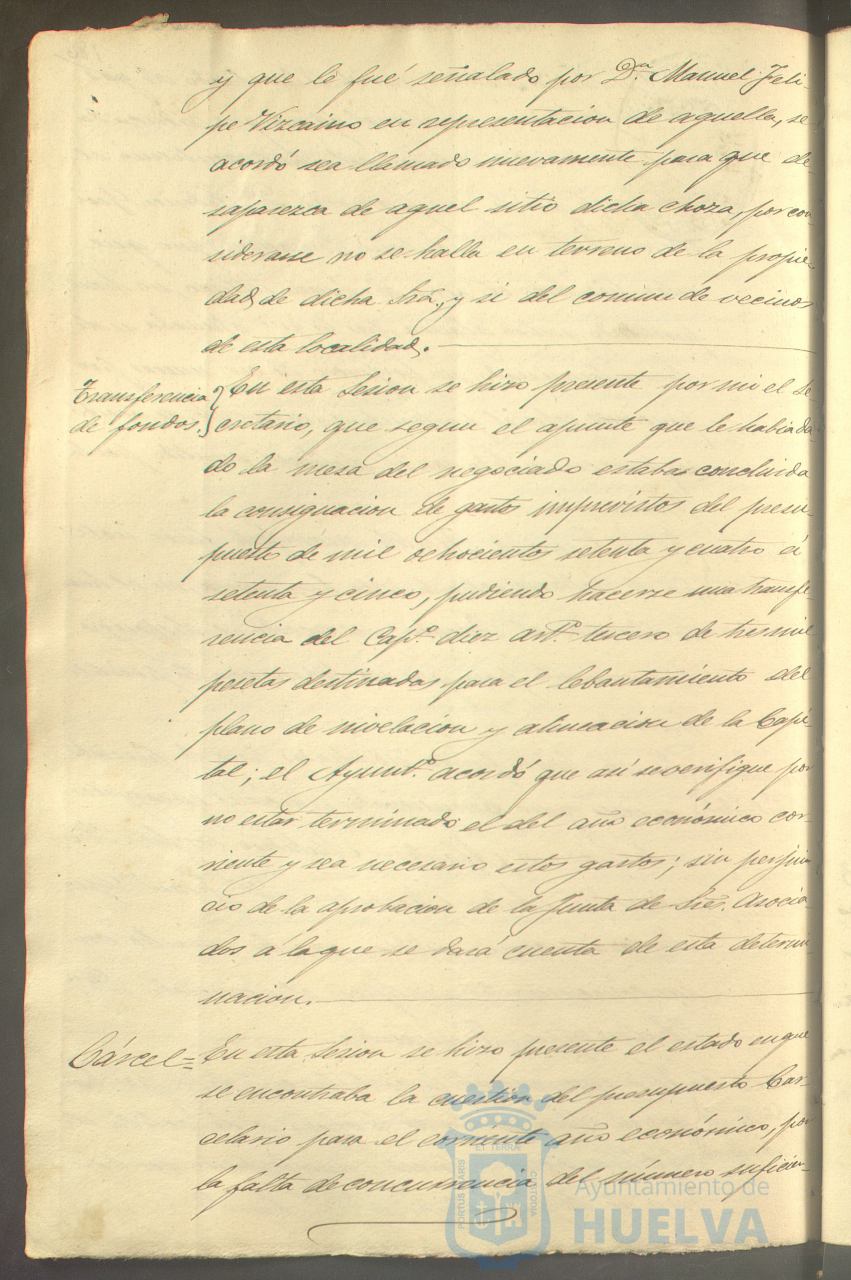 y que le fué señalado por Dn. Manuel Feli-
pe Vizcaino en representacion de aquella, se
acordó sea llamado nuevamente para que de-
saparezca de aquel sitio dicha choza, por con-
siderarse no se halla en terreno de la propie-
dad de dicha Sra., y si del comun de vecinos
de esta localidad.
Transferencia
de fondos.
En esta Sesion se hizo presente por mi el Se-
cretario, que segun el apunte que le habia da-
do la mesa del negociado estaba concluida
la consignacion de gastos imprevistos del presu-
puesto de mil ochocientos setenta y cuatro á
setenta y cinco, pudiendo hacerse una transfe-
rencia del Capº. diez artº. tercero de tres mil
pesetas destinadas para el lebantamiento del
plano de nivelacion y alineacion de la Capi-
tal; el Ayuntº. acordó que asi se verifique por
no estar terminado el del año económico cor-
riente y sea necesario estos gastos; sin perjui-
cio de la aprobacion de la Junta de Sres. Asocia-
dos á la que se dará cuenta de esta determi-
nacion.
Cárcel =
En esta Sesion se hizo presente el estado en que
se encontraba la cuestion del presupuesto Car-
celario para el corriente año económico, por
la falta de concurrencia del número suficien-
PORTUS MARIS
ET TERRÆ
CUSTODIA
Ayuntamiento de
HUELVA